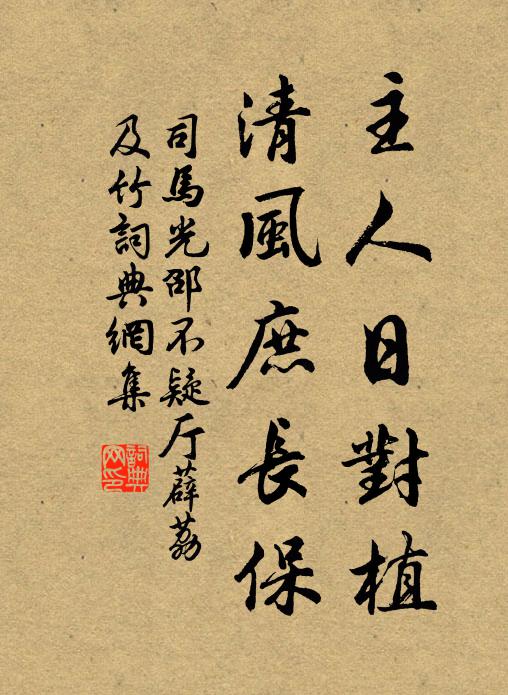 主人日對植
清風庶長保
司馬光邵不疑厅薜荔
及竹詞典網集
詞典網印